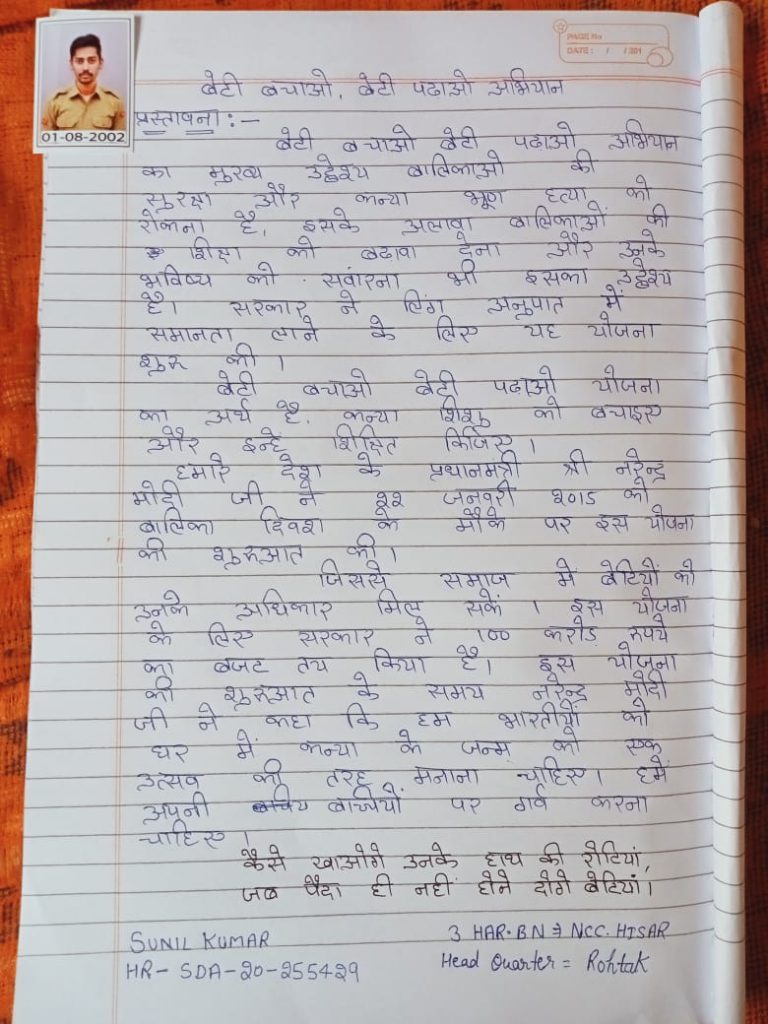 PAGE No
DATE: / /201
01-08-2002
बेटी बचाओ, बेटी पढाओ अभियान
प्रस्तावना :-
बेटी बचाओ बेटी पढाओ अभियान
का मुख्य उद्देश्य बालिकाओ की
सुरक्षा और कन्या भूण हत्या को
रोकना है, इसके अलावा बालिकाओं की
शिक्षा को बढावा देना और उनके
भविष्य को सवांरना भी इसका उद्देश्य
है। सरकार ने लिंग अनुपात में
समानता लाने के लिए यह योजना
शुरू की ।
बेटी बचाओ बेटी पढाओ योजना
का अर्थ है, कन्या शिशु को बचाइए
और इन्हे शिक्षित किजिए ।
हमारे देश के प्रधानमंत्री श्री नरेन्द्र
मोदी जी ने २२ जनवरी २०15 को
बालिका दिवश के मौके पर इस योजना
की शुरूआत की ।
जिससे समाज में बेटियों को
उनके अधिकार मिल सकें । इस योजना
के लिए सरकार ने 100 करोड़ रूपये
का बजट तय किया है। इस योजना
की शुरूआत के समय नरेन्द्र मोदी
जी ने कहा कि हम भारतीयों को
घर में कन्या के जन्म को एक
उत्सव की तरह मनाना चाहिए। हमें
अपनी बच्चियों पर गर्व करना
चाहिए ।
कैसे खाओगे उनके हाथ की रोटियां,
जब पैदा ही नहीं होने दोगे बेटियां।
SUNIL KUMAR 3 HAR. BN NCC. HISAR
HR- SDA-20-255429 Head Quarter = Rohtak